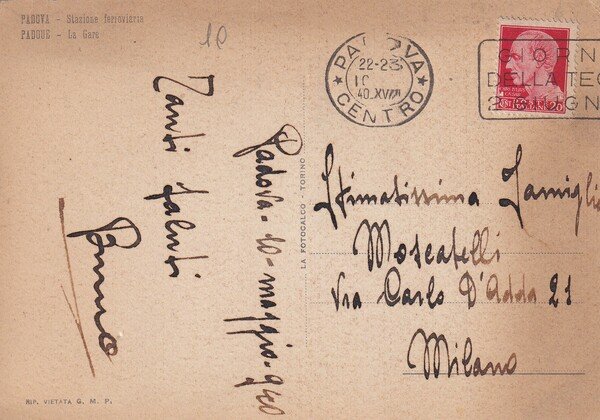 PADOVA - Stazione ferroviaria
PADOUE - La Gare
10
Tanti saluti
Bruno
Padova - 10 - maggio - 940
LA FOTOCALCO - TORINO
PADOVA
22-23
40.XVIII
CENTRO
GIORN
DELLA TEC
2 GIUGN
Stimatissima Famiglia
Moscatelli
Via Carlo D'Adda 21
Milano
RIP. VIETATA G. M. P.